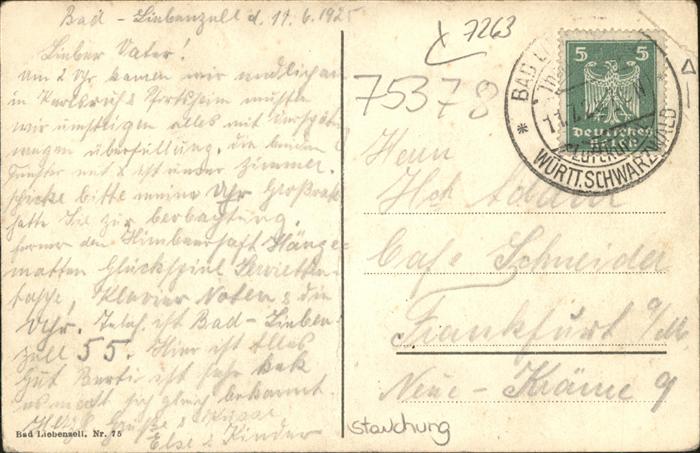 Bad - Liebenzell d. 11.6.1925
Lieber Vater!
Um 2 Uhr kamen wir endlich an
in Karlsruh & Pforzheim mußten
wir umsteigen alles mit Verspät
wegen überfüllung. die beiden
Fenster mit x ist unser Zimmer.
schicke bitte meine Uhr Großvater
hatte Sie zur beobachtung.
ferner den Himbeersaft Hänge
matten Glückspiel Servietten
tasche, Klavier Noten & die
Uhr. Telef. ist Bad-Lieben
zell 55. Hier ist alles
gut Berti ist sehr
es macht sich gleich bekannt.
Herzl. Grüße & Küsse
Else & Kinder
Bad Liebenzell, Nr. 75
x 7263
75378
5 5
Deutsches
Reich
BAD
WÜRTT. SCHWARZWALD
Herrn
Hch Adam
Cafe Schneider
Frankfurt a/M
Neue - Kräme 9
Stauchung